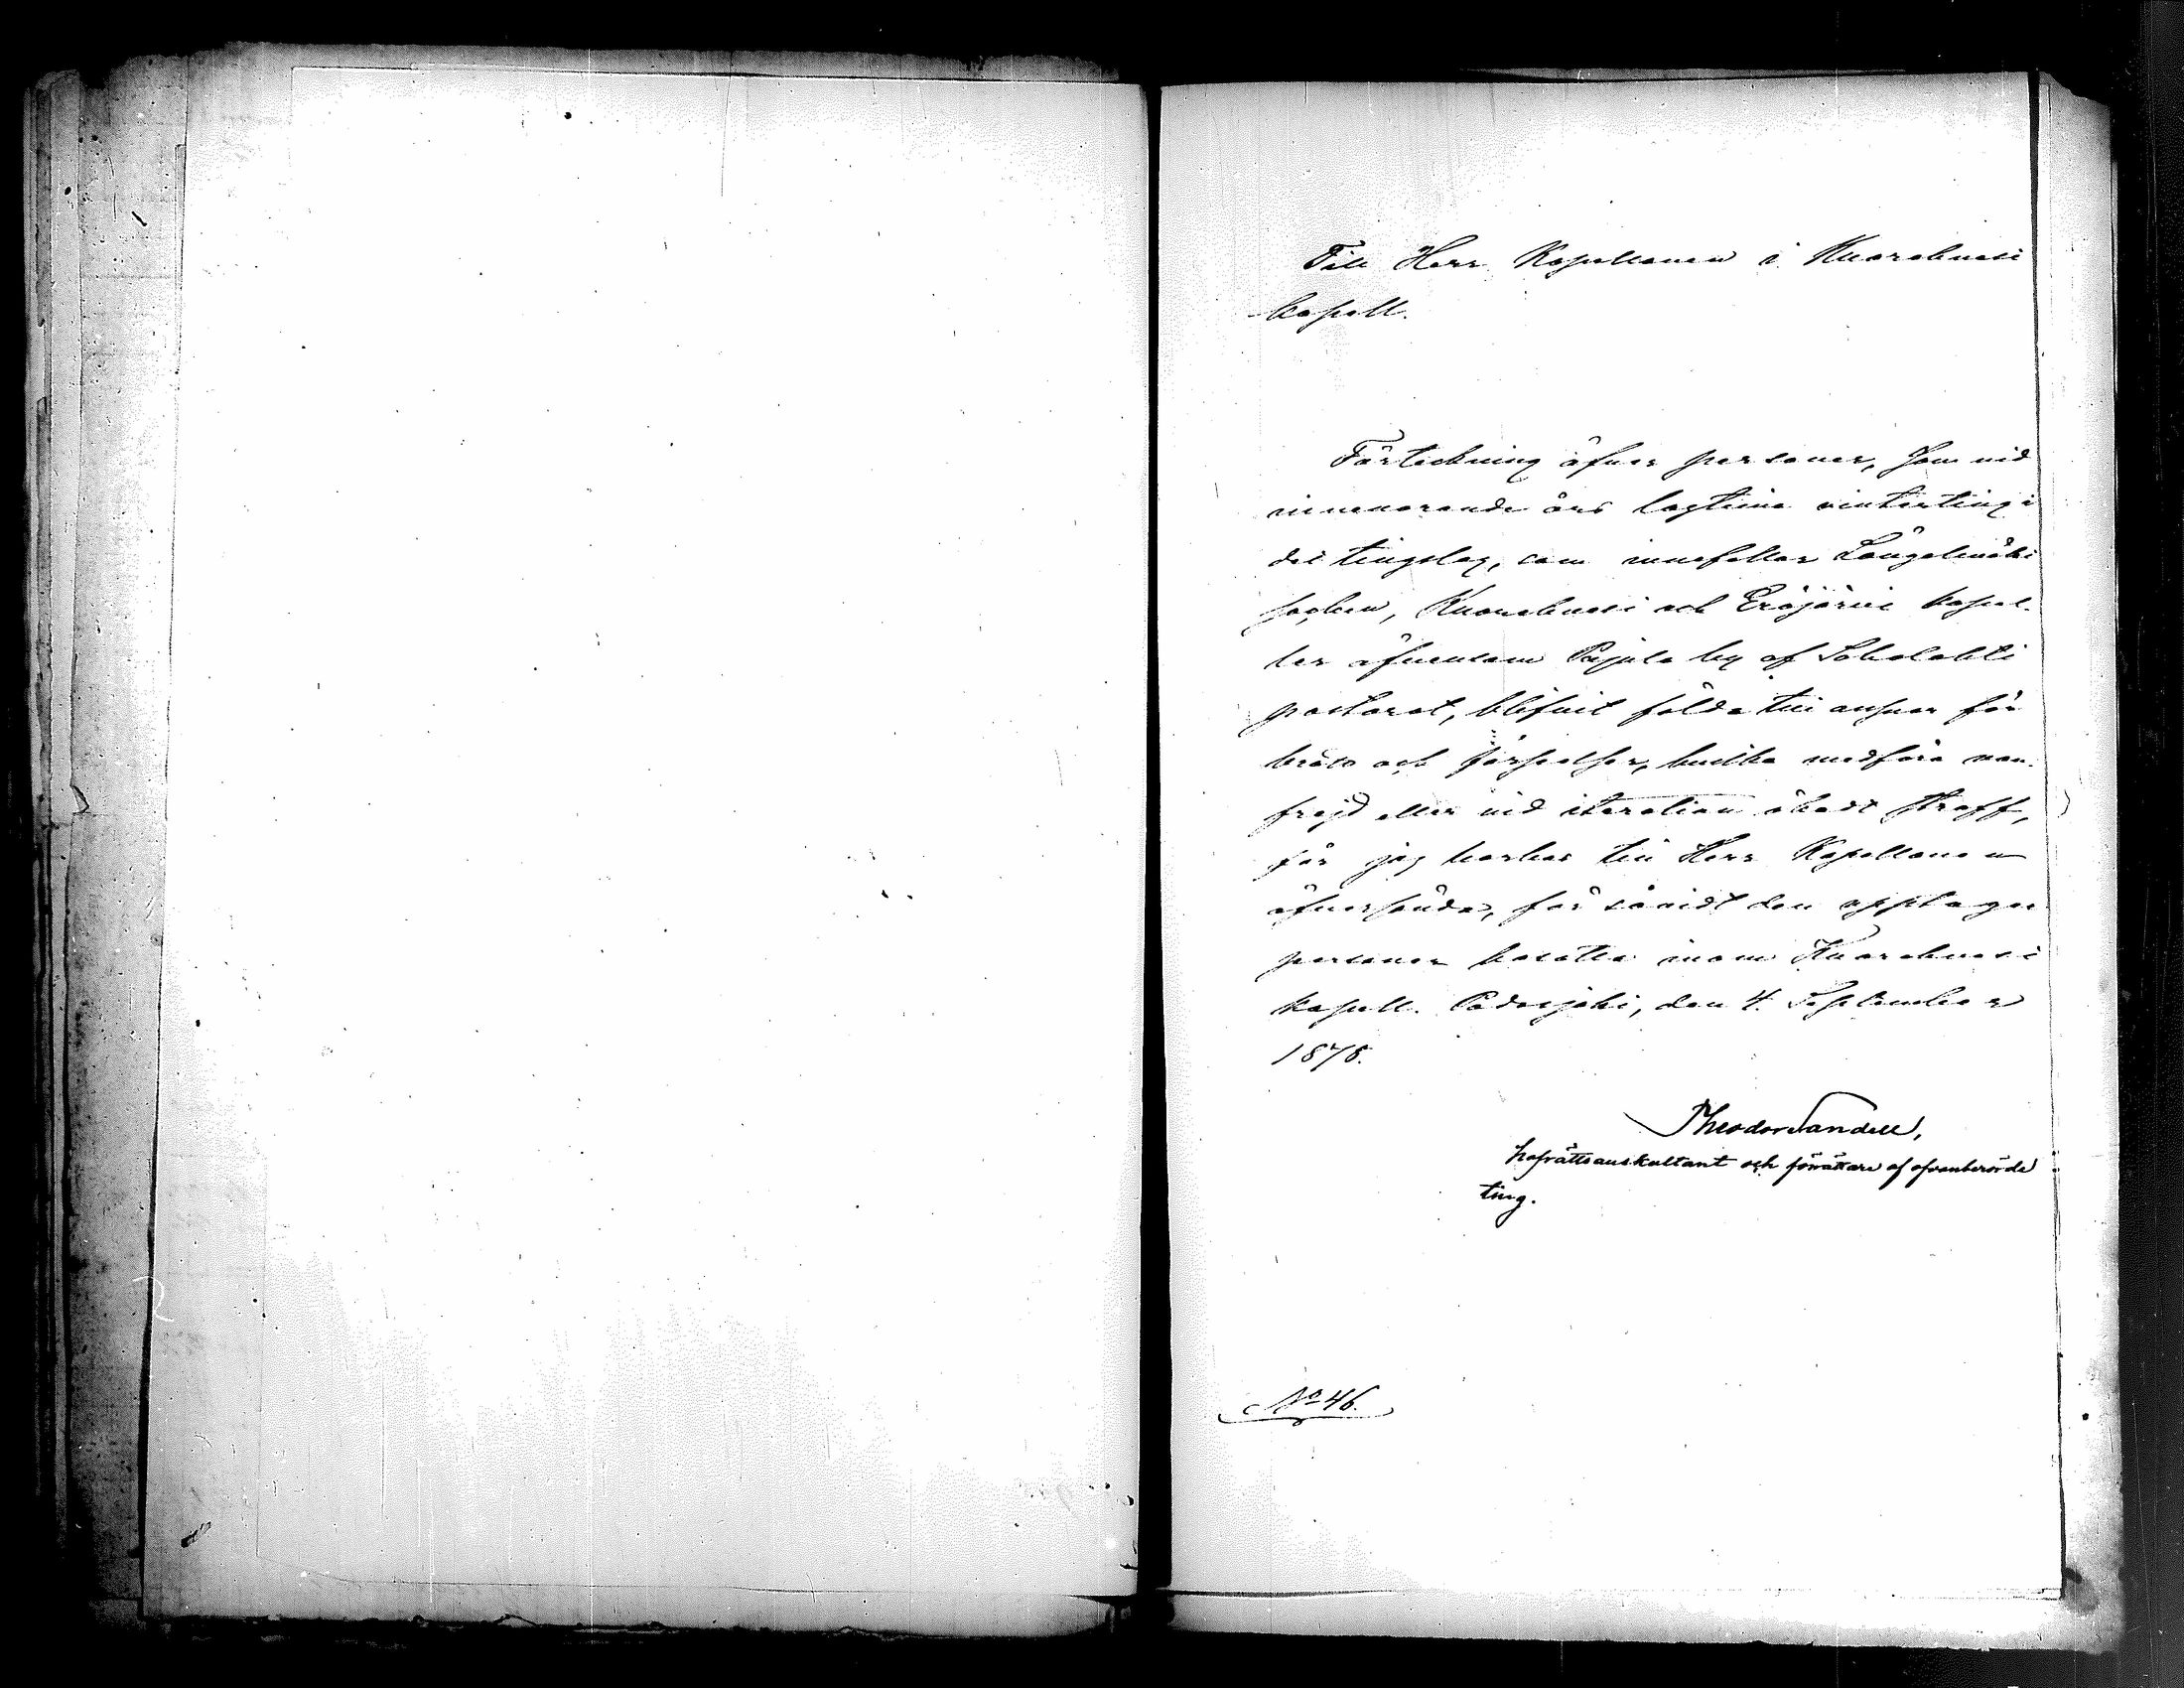 Till Herr Kapellanen i Kuorehvesi
kapell.
Förteckning öfver personer, som vid
innevarande års lagtima vinterting i
det tingslag, som innefattar Längelmäki
socken, Kuorehvesi och Eräjärvi kapel-
ler äfvensom Pajula by af Sahalahti
pastorat, blifvit fälda till ansvar för
brott och förseelser, hvilka medföra van-
frejd eller vid iteration ökadt straff,
får jag härhos till Herr Kapellanen
öfversända, för såvidt den upptager
personer bosatta inom Kuorehvesi
kapell. Padasjoki, den 4. September
1878.
Theodor Sandell,
hofrättsauskultant och förrättare af ofvanberörde
ting.
No 46.